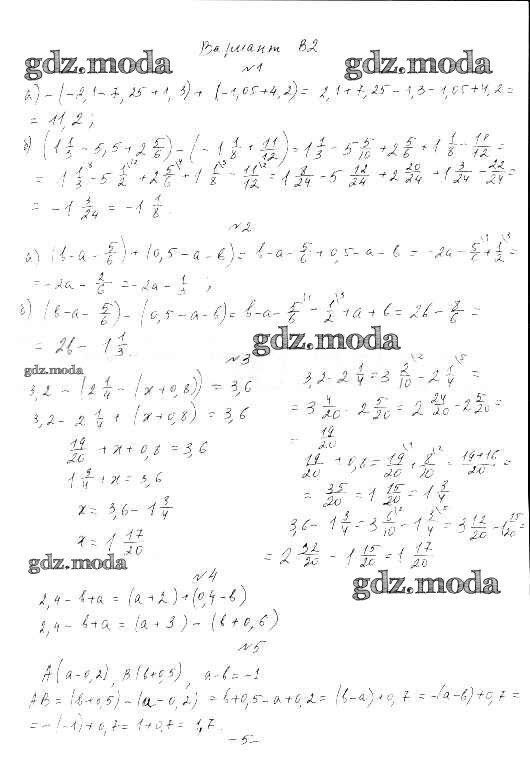 Вариант В2
gdz.moda gdz.moda
№1
а) -(-2,1-7,25+1,3)+(-1,05+4,2)= 2,1+7,25-1,3-1,05+4,2=
= 11,2;
б) (1 1/3 - 5,5 + 2 5/6) - (-1 1/8 + 11/12) = 1 1/3 - 5 5/10 + 2 5/6 + 1 1/8 - 11/12 =
= 1 1/3 - 5 1/2 + 2 5/6 + 1 1/8 - 11/12 = 1 8/24 - 5 12/24 + 2 20/24 + 1 3/24 - 22/24 =
= -1 3/24 = -1 1/8.
№2
а) (b-a-5/6)+(0,5-a-b)= b-a-5/6+0,5-a-b = -2a-5/6+1/2=
= -2a-2/6 = -2a-1/3;
б) (b-a-5/6)-(0,5-a-b)= b-a-5/6-1/2+a+b=2b-8/6=
= 2b - 1 1/3.
gdz.moda
№3
gdz.moda
3,2-(2 1/4-(x+0,8))=3,6
3,2-2 1/4+(x+0,8)=3,6
19/20+x+0,8=3,6
1 3/4+x=3,6
x=3,6-1 3/4
x=1 17/20
3,2-2 1/4=3 2/10-2 1/4=
=3 4/20-2 5/20=2 24/20-2 5/20=
=19/20
19/20+0,8=19/20+8/10=(19+16)/20=
=35/20=1 15/20=1 3/4
3,6-1 3/4=3 6/10-1 3/4=3 12/20-1 15/20=
=2 32/20-1 15/20=1 17/20
gdz.moda
gdz.moda
№4
2,4-b+a=(a+2)+(0,4-b)
2,4-b+a=(a+3)-(b+0,6)
№5
A(a-0,2), B(b+0,5), a-b=-1
AB=(b+0,5)-(a-0,2)=b+0,5-a+0,2=(b-a)+0,7=-(a-b)+0,7=
=-(-1)+0,7=1+0,7=1,7.
-5-